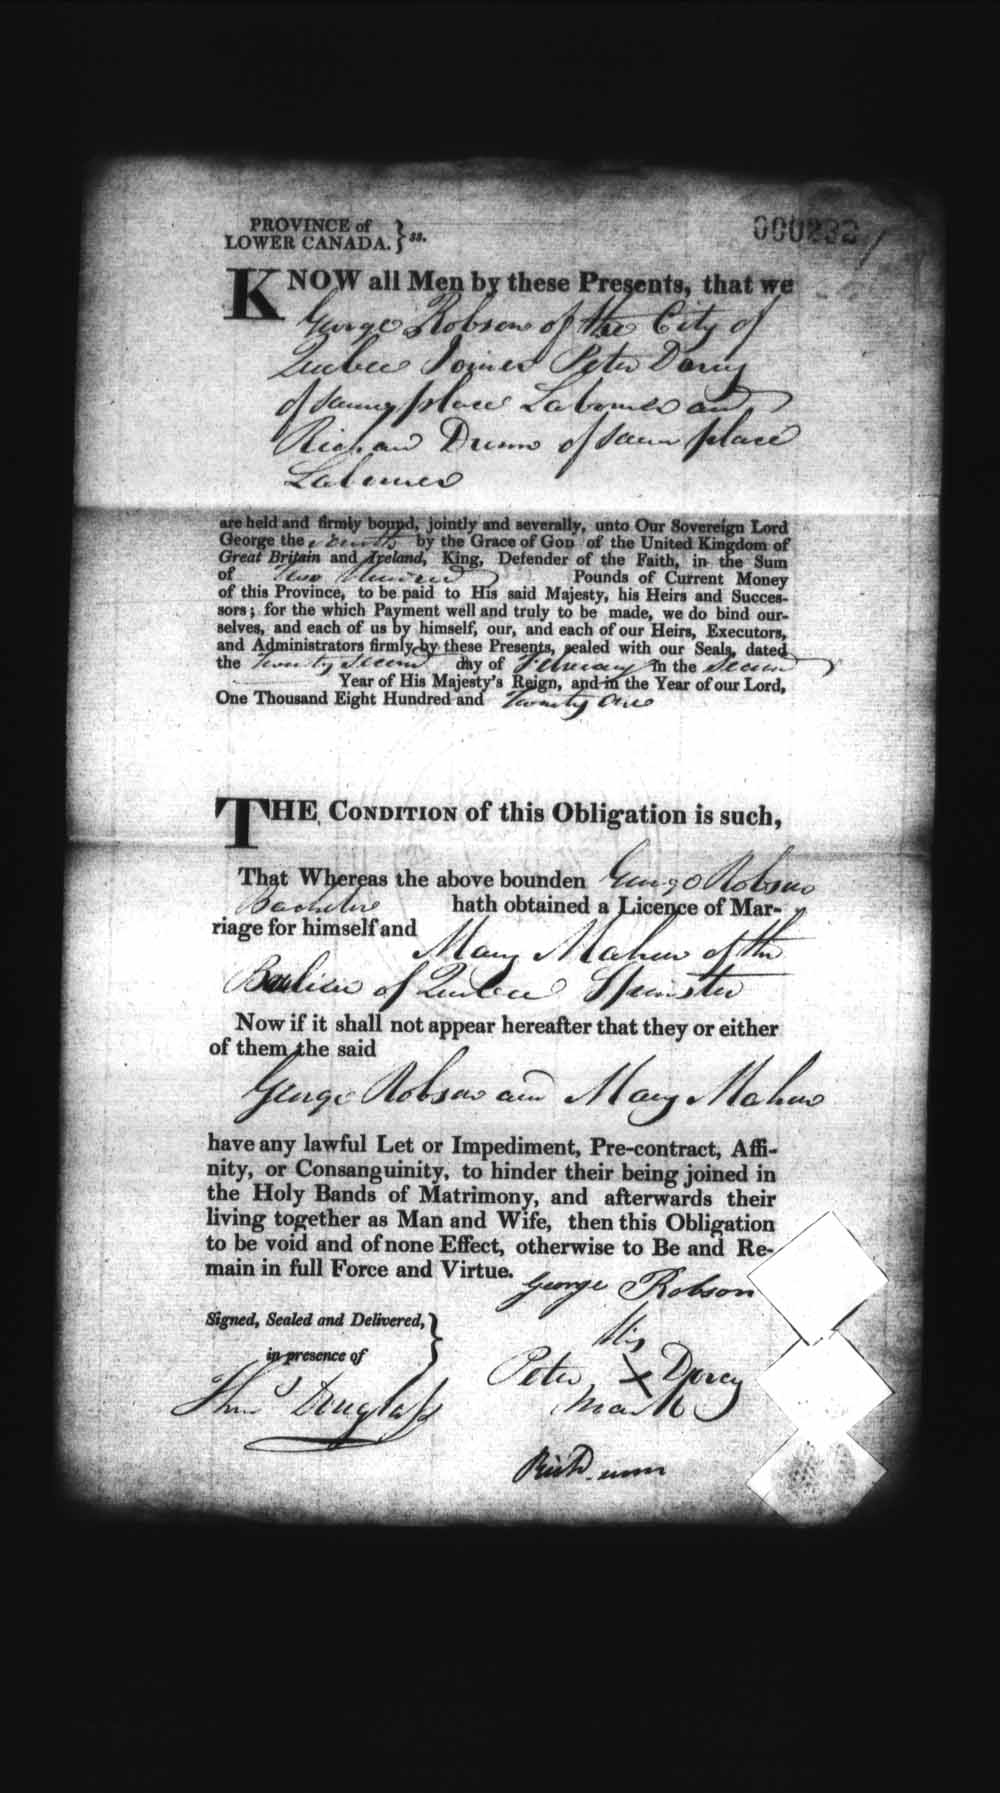 PROVINCE of } ss.
LOWER CANADA.
000232
KNOW all Men by these Presents, that we
George Robson of the City of
Quebec Joiner Peter Darcy
of same place Labourer and
Richard Dunn of same place
Labourer
are held and firmly bound, jointly and severally, unto Our Sovereign Lord
George the Fourth by the Grace of GOD of the United Kingdom of
Great Britain and Ireland, King, Defender of the Faith, in the Sum
of Two Hundred Pounds of Current Money
of this Province, to be paid to His said Majesty, his Heirs and Succes-
sors; for the which Payment well and truly to be made, we do bind our-
selves, and each of us by himself, our, and each of our Heirs, Executors,
and Administrators firmly by these Presents, sealed with our Seals, dated
the Twenty Second day of February in the Second
Year of His Majesty's Reign, and in the Year of our Lord,
One Thousand Eight Hundred and Twenty One
THE CONDITION of this Obligation is such,
That Whereas the above bounden George Robson
Bachelor hath obtained a Licence of Mar-
riage for himself and
Mary Maher of the
of Quebec Spinster
Now if it shall not appear hereafter that they or either
of them the said
George Robson and Mary Maher
have any lawful Let or Impediment, Pre-contract, Affi-
nity, or Consanguinity, to hinder their being joined in
the Holy Bands of Matrimony, and afterwards their
living together as Man and Wife, then this Obligation
to be void and of none Effect, otherwise to Be and Re-
main in full Force and Virtue.
George Robson
Signed, Sealed and Delivered, }
in presence of
his
Peter X Darcy
Mark
Thos Douglass
Rich D unn